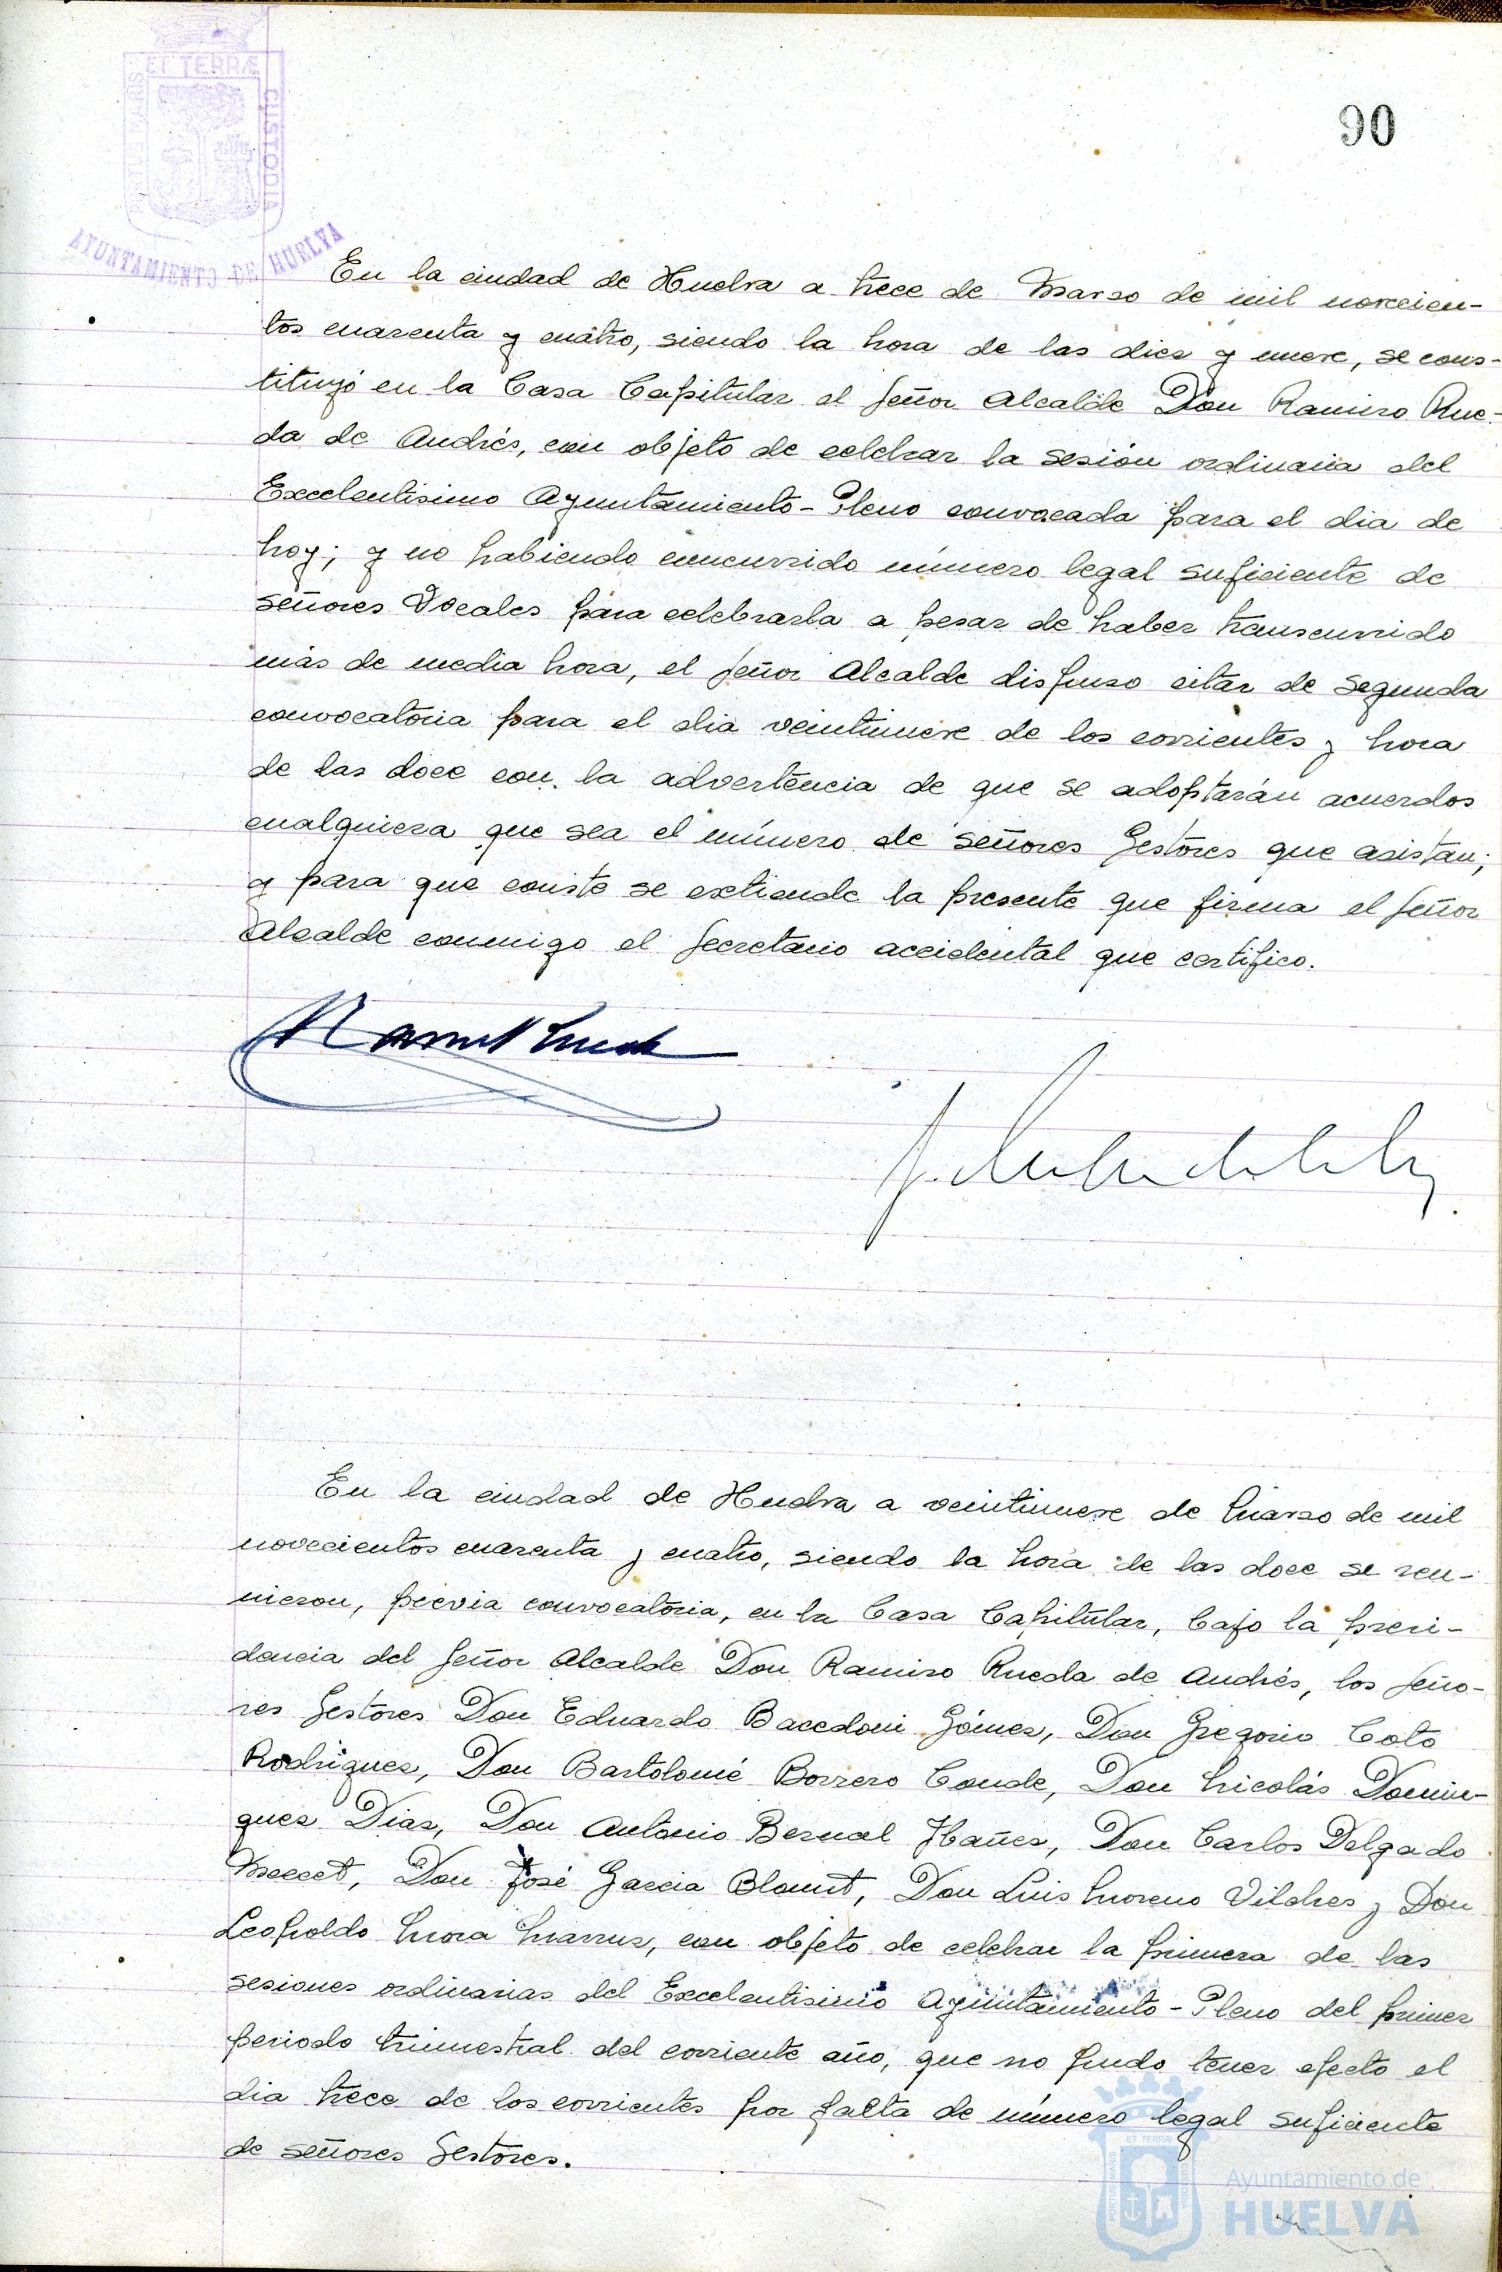 PORTUS MARIS ET TERRÆ CUSTODIA
AYUNTAMIENTO DE HUELVA
90
En la ciudad de Huelva a trece de Marzo de mil novecien-
tos cuarenta y cuatro, siendo la hora de las diez y nueve, se cons-
tituyó en la Casa Capitular el Señor Alcalde Don Ramiro Rue-
da de Andrés, con objeto de celebrar la sesión ordinaria del
Excelentisimo Ayuntamiento-Pleno convocada para el dia de
hoy; y no habiendo concurrido número legal suficiente de
señores Vocales para celebrarla a pesar de haber transcurrido
más de media hora, el Señor Alcalde dispuso citar de segunda
convocatoria para el dia veintinueve de los corrientes y hora
de las doce con la advertencia de que se adoptarán acuerdos
cualquiera que sea el número de señores Gestores que asistan;
y para que conste se extiende la presente que firma el Señor
Alcalde conmigo el Secretario accidental que certifico.
En la ciudad de Huelva a veintinueve de Marzo de mil
novecientos cuarenta y cuatro, siendo la hora de las doce se reu-
nieron, previa convocatoria, en la Casa Capitular, bajo la presi-
dencia del Señor Alcalde Don Ramiro Rueda de Andrés, los Seño-
res Gestores Don Eduardo Bacedoni Gómez, Don Gregorio Coto
Rodriguez, Don Bartolomé Borrero Conde, Don Nicolás Domin-
guez Diaz, Don Antonio Bernal Ybañez, Don Carlos Delgado
Don José Garcia Blount, Don Luis Moreno Vilches y Don
Leopoldo Mora con objeto de celebrar la primera de las
sesiones ordinarias del Excelentisimo Ayuntamiento-Pleno del primer
periodo trimestral del corriente año, que no pudo tener efecto el
dia trece de los corrientes por falta de número legal suficiente
de señores Gestores.
PORTUS MARIS ET TERRÆ CUSTODIA
Ayuntamiento de
HUELVA